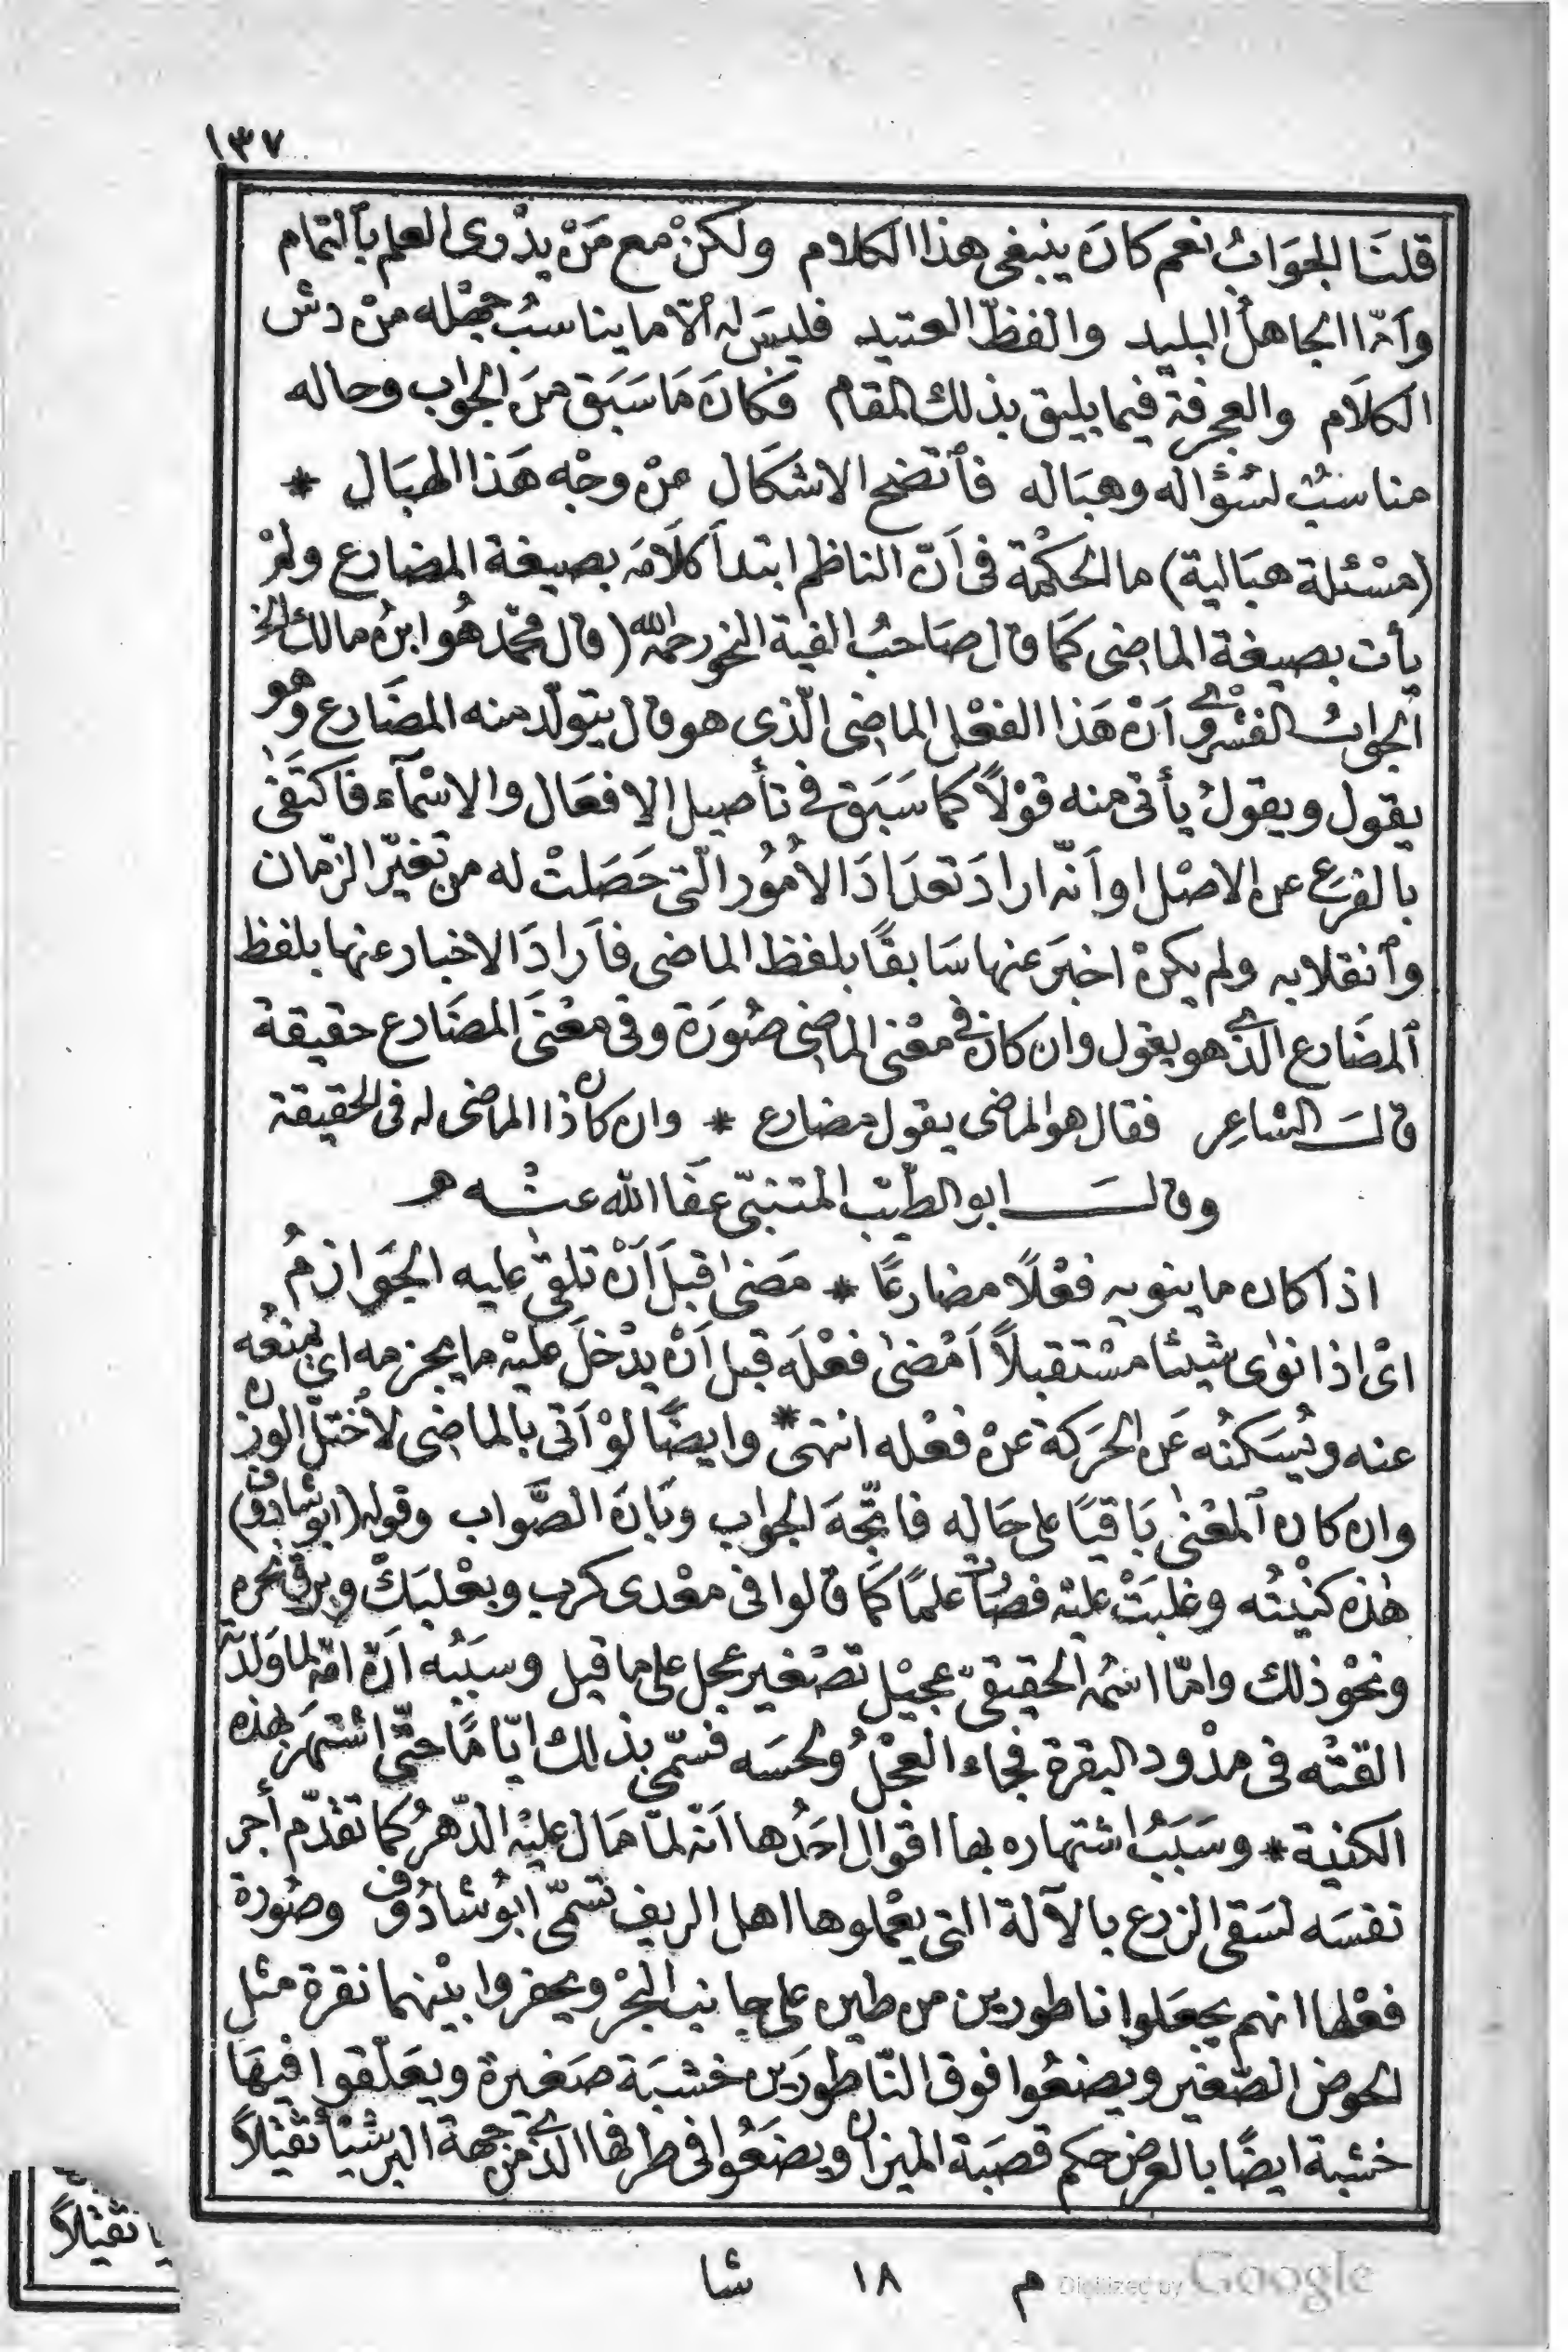 ١٣٧
قلنَا الجوَابُ نعم كانَ ينبغى هذا الكلام ولكنْ مع مَنْ يدْرى العلم بٱلتمام
وأمّا الجاهلُ البليد والفظّ العتيد فليسَ له ٱلّا ما يناسبُ جهْله منْ دش
الكلَام والعجرفة فيما يليق بذلك المقام فكانَ مَا سَبَق منَ الجواب وحاله
مناسبٌ لسُؤاله وهبَاله فٱتضح الاشكَال عنْ وجْه هَذا الهبَال *
(مسْئلة هبَالية) ما الحكْمة فى اَنّ الناظم ابتدأ كلَامَه بصيغة المضارع ولمْ
يأت بصيغة الماضى كمَا قال صَاحبُ الفية النحو رحمه الله (قال محمّد هُو ابنُ مالك الخ
ٱلجوابُ الفشْروىْ اَنْ هَذا الفعْل الماضى الّذى هو قال يتولّد منه المضَارع وَهو
يقول ويقولُ يأتى منه قوْلاً كما سَبَق فى تأصيل الافعَال والاسْمآء فَاكتَفىٰ
بالفرَع عن الاصْل اوأنّه ارادَ تعدَادَ الاُمُور الّتى حَصَلتْ له من تغيّر الزّمان
وٱنقلابه ولم يكنْ اخبَر عنها سَابقًا بلفظ الماضى فأرادَ الاخبار عنها بلفظ
ٱلمضَارع الّذى هو يقول وان كان فى معْنى الماضى صُورَة وفى معْنَى المضَارع حقيقة
قالَ الشاعِر فقال هو الماضى يقول مضارع * وان كان ذا الماضى له فى الحقيقة
وقالَ ابو الطيّب المتنبىّ عفَا الله عنْه
اذا كان ما ينويه فعْلاً مضارعًا * مَضىٰ قبلَ أنْ تلقىٰ عليه الجَوازمُ
اىْ اذا نوٰى شيئا مسْتقبلاً اَمْضىٰ فعْلَه قبل اَنْ يدْخلَ عليْه ما يجزمه اى يمنعُه
عنه ويُسَكنُه عَن الحرَكة عنْ فعْله انتهىٰ * وايضًا لوْ اَتى بالماضى لاخُتلّ الوزن
وان كان ٱلمعْنىٰ بَاقيًا على حَاله فاتّجهَ الجواب وبَانَ الصَّواب وقوله (ابو شادوف)
هٰذه كنْيتُه وغلبَتْ عليْه فصَارت علمًا كمَا قالوا فى معْدى كرب وبعْلبَكّ وبرق نحره
ونحْو ذلك وامّا اسْمُه الحقيقىّ عجيْل تصْغير عجل على ما قيل وسبَبُه اَنّ امّه لما وَلدته
القتْه فى مدْود البقرة فجاء العجْلُ ولحسَه فسمّى بذلك ايّامًا حتّى اشتهرَ بهذه
الكنية * وسَبَبُ اشتهاره بها اقوال احَدُها اَنّه لمّا مَال عليْه الدّهرُ كما تقدّم أجر
نفسَه لسَقى الزرع بالآلة التى يعْملوها اهل الريف تسمّى أبُو شادُوف وصُورة
فعْلها انهم يجعَلوا ناطورين من طين على جانب البحْر ويحفروا بيْنهما نقرة مثل
الحوض الصّغير ويضعُوا فوق النّاطورَين خشبَة صَغيرة ويعَلّقوا فيهَا
خشبة ايضًا بالعرض حكم قصَبَة الميزان ويضَعُوا فى طرفها الّذى منْ جهة البر شيْأ ثقيْلاً
م ١٨ شا
Digitized by Google
يا ثقيْلاً